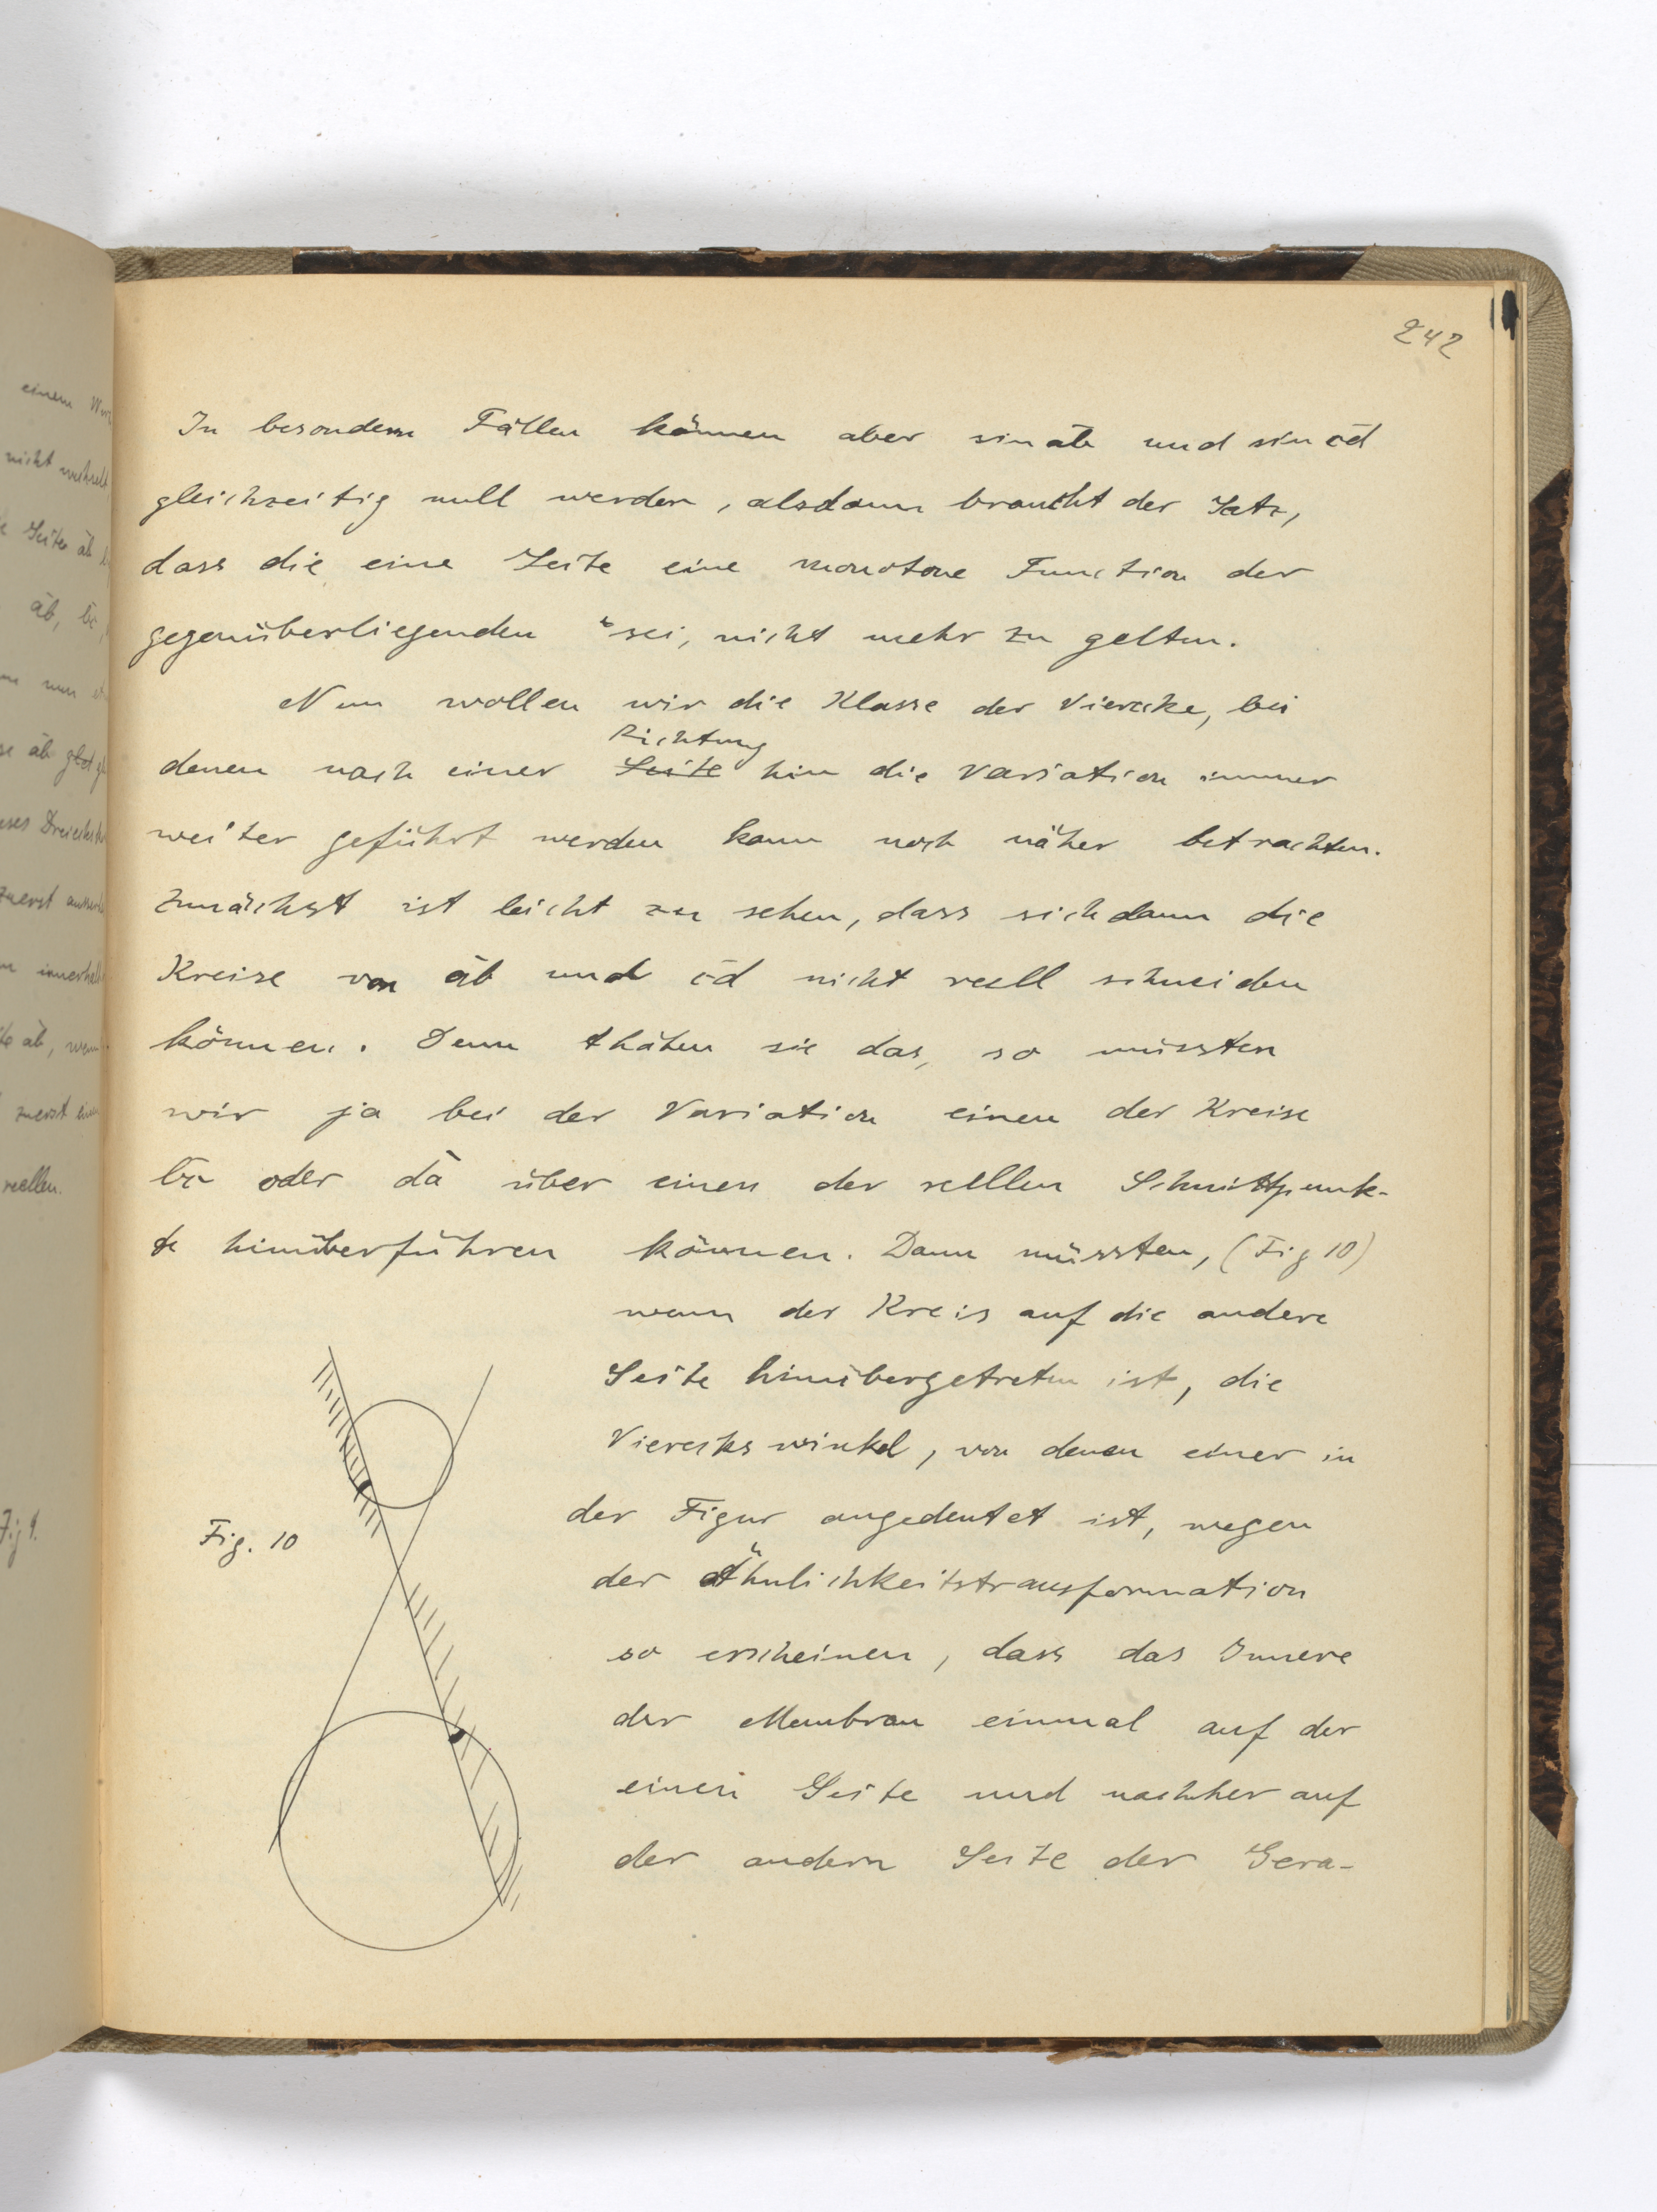 242
In besondern Fällen können aber sin āb und sin c̄d
gleichzeitig null werden, alsdann braucht der Satz,
dass die eine Seite eine monotone Function der
gegenüberliegenden sei, nicht mehr zu gelten.
Nun wollen wir die Klasse der Vierecke, bei
Richtung
denen nach einer Seite hin die Variation immer
weiter geführt werden kann noch näher betrachten.
Zunächst ist leicht zu sehen, dass sich dann die
Kreise von āb und c̄d nicht reell schneiden
können. Denn thäten sie das, so müssten
wir ja bei der Variation einen der Kreise
b̄c oder d̄a über einen der reellen Schnittpunk-
te hinüberführen können. Dann müssten, (Fig 10)
wenn der Kreis auf die andere
Seite hinübergetreten ist, die
Viereckswinkel, von denen einer in
der Figur angedeutet ist, wegen
der Ähnlichkeitstransformation
so erscheinen, dass das Innere
der Membran einmal auf der
einen Seite und nachher auf
der andern Seite der Gera-
Fig. 10
einem
nicht
Seite āb
āb, b̄c,
nun
āb
zuerst
āb,
zuerst
reellen.
Fig 9.